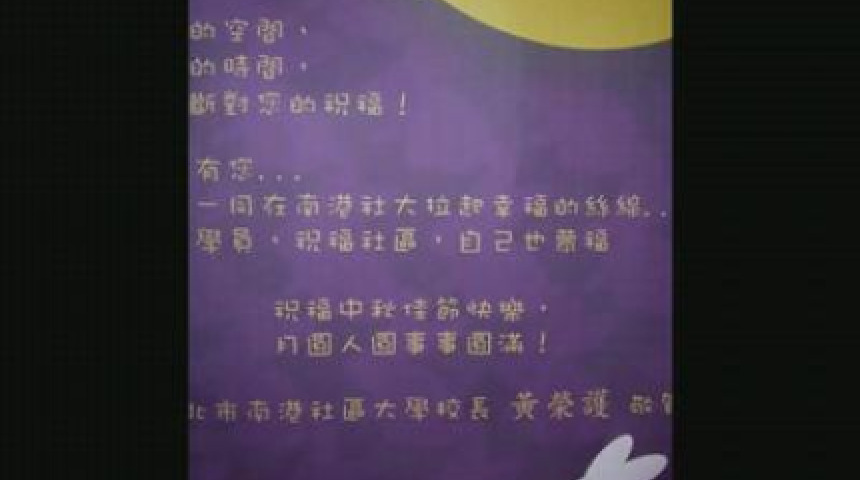 的空間，
的時間，
斷對您的祝福！
有您...
一同在南港社大拉起幸福的絲線..
學員，祝福社區，自己也蒙福
祝福中秋佳節快樂，
月圓人圓事事圓滿！
北市南港社區大學校長 黃榮護 敬賀